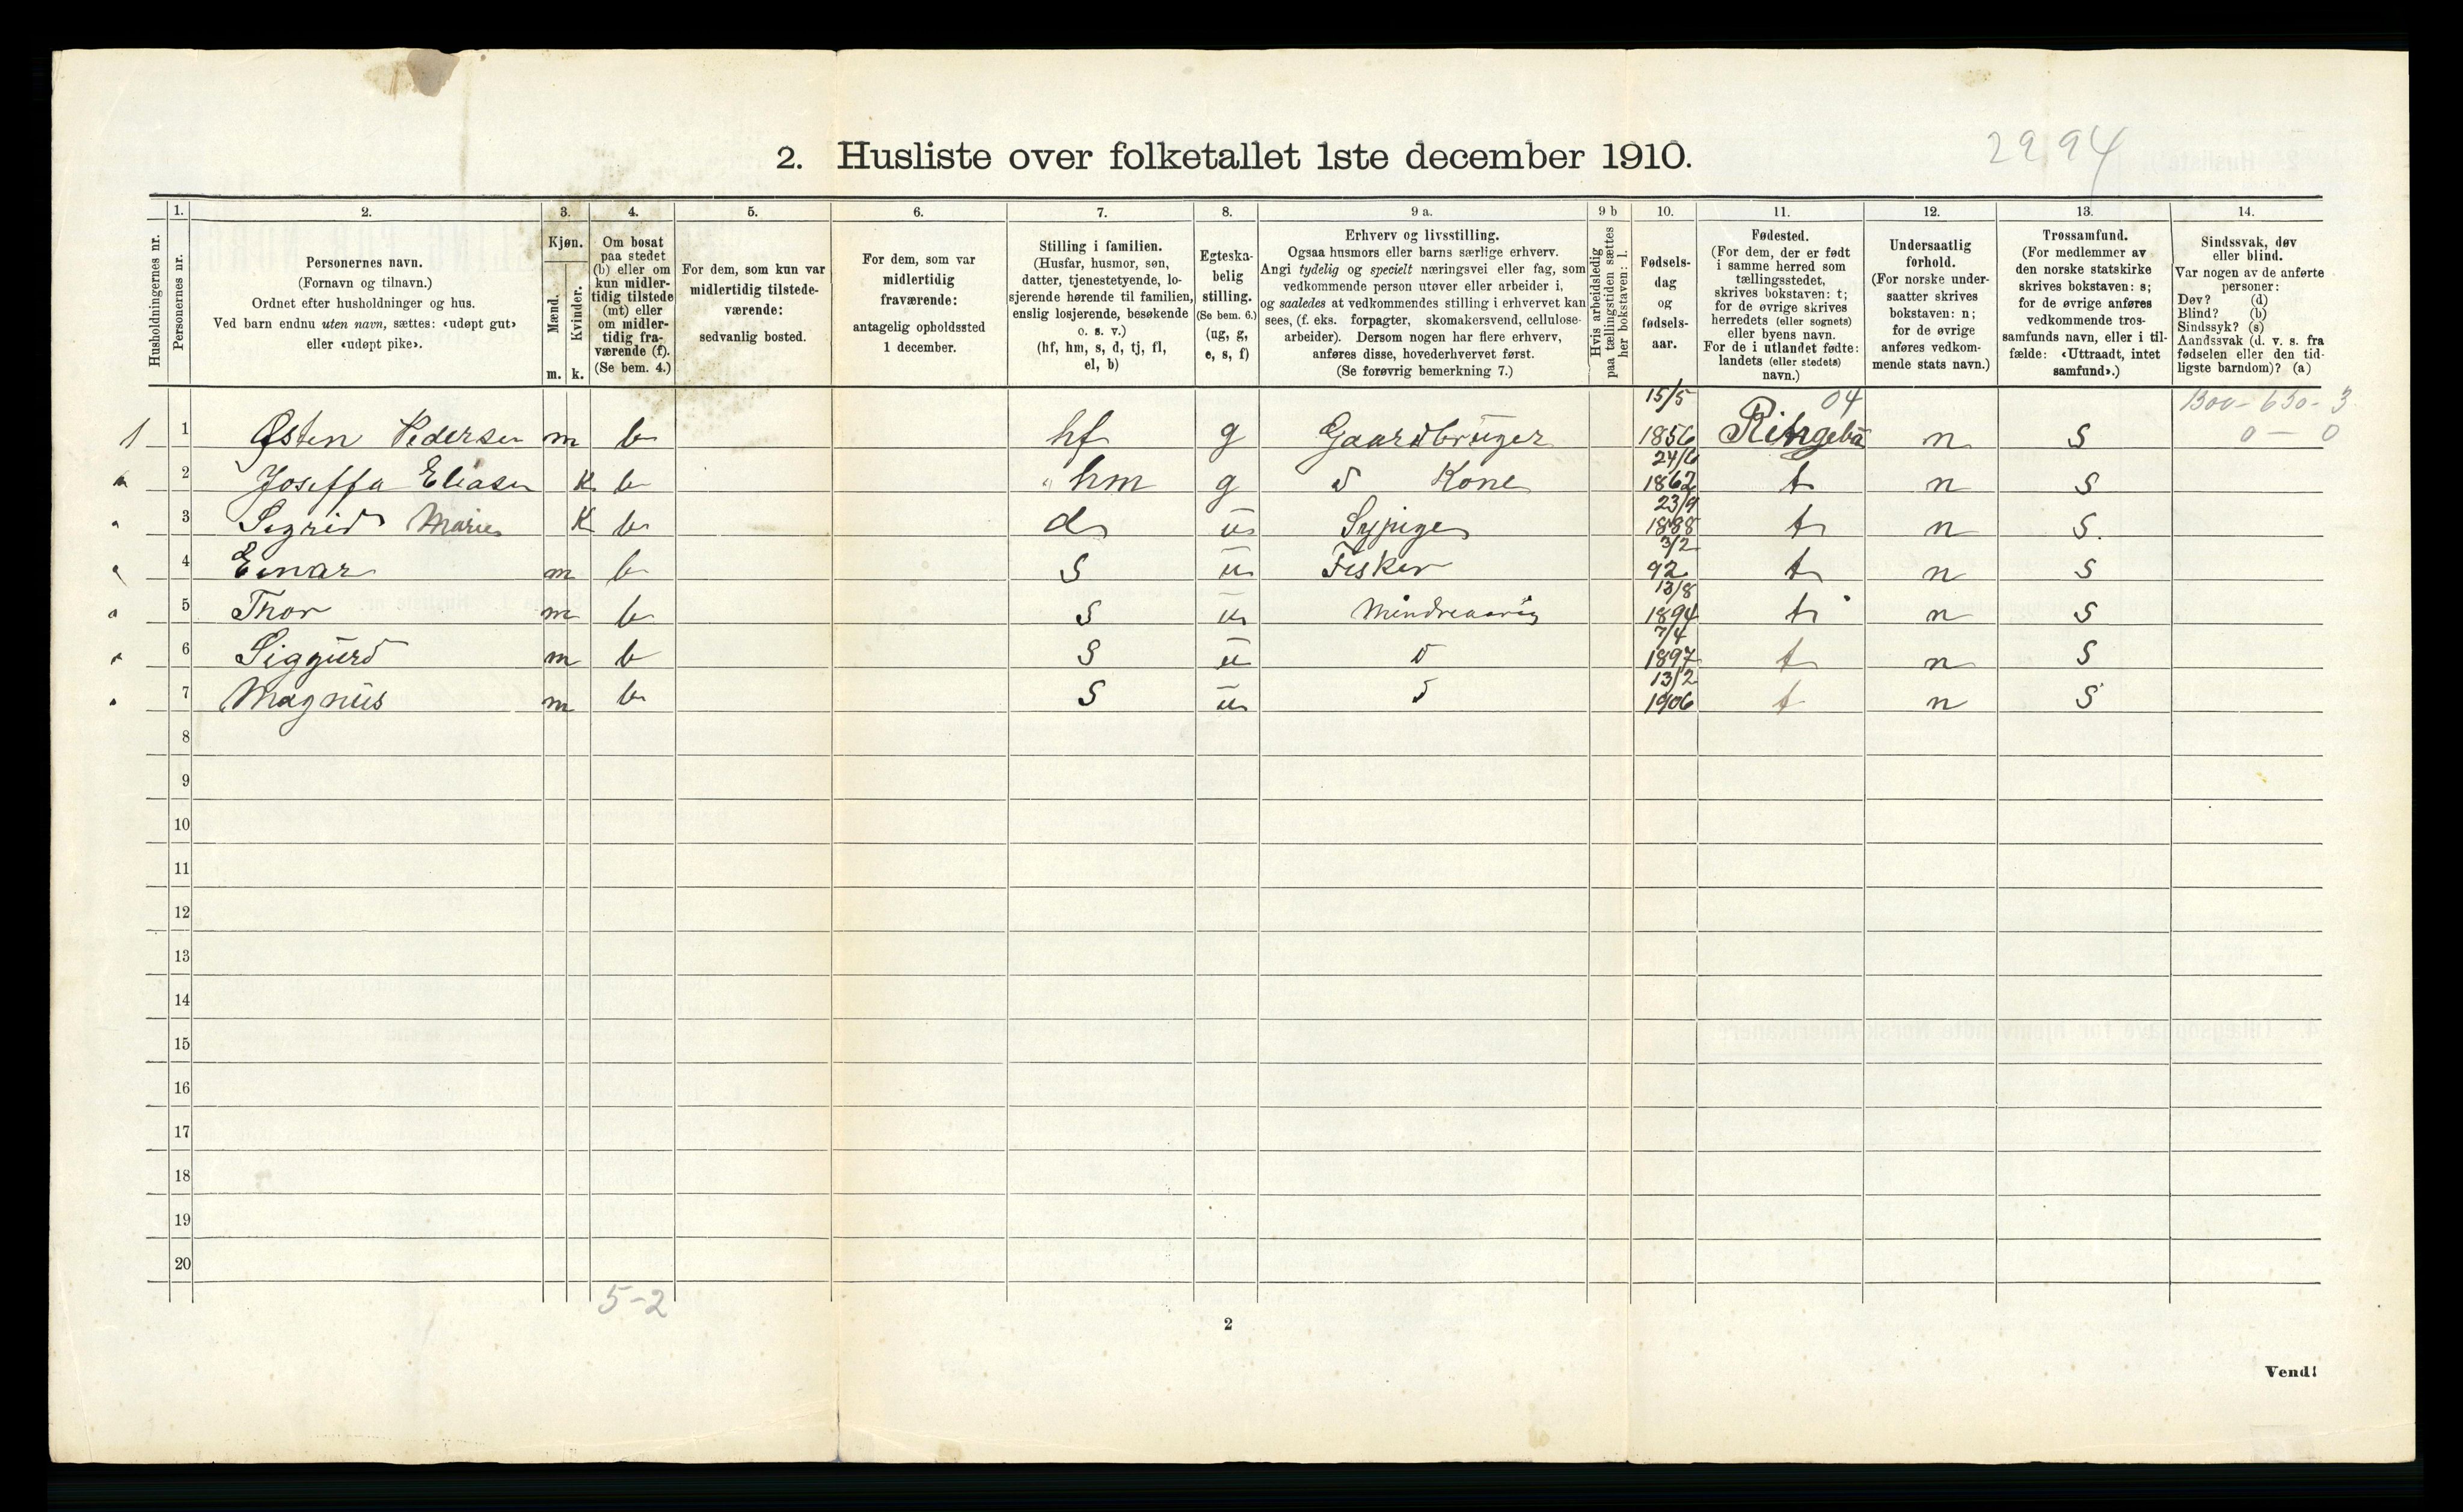 2994
2. Husliste over folketallet 1ste december 1910.
Husholdningernes nr.
1. Personernes nr.
2. Personernes navn. (Fornavn og tilnavn.) Ordnet efter husholdninger og hus. Ved barn endnu uten navn, sættes: «udøpt gut» eller «udøpt pike».
3. Kjøn. Mænd. m. Kvinder. k.
4. Om bosat paa stedet (b) eller om kun midlertidig tilstede (mt) eller om midlertidig fraværende (f). (Se bem. 4.)
5. For dem, som kun var midlertidig tilstedeværende: sedvanlig bosted.
6. For dem, som var midlertidig fraværende: antagelig opholdssted 1 december.
7. Stilling i familien. (Husfar, husmor, søn, datter, tjenestetyende, losjerende hørende til familien, enslig losjerende, besøkende o. s. v.) (hf, hm, s, d, tj, fl, el, b)
8. Egteskabelig stilling. (Se bem. 6.) (ug, g, e, s, f)
9 a. Erhverv og livsstilling. Ogsaa husmors eller barns særlige erhverv. Angi tydelig og specielt næringsvei eller fag, som vedkommende person utøver eller arbeider i, og saaledes at vedkommendes stilling i erhvervet kan sees, (f. eks. forpagter, skomakersvend, cellulosearbeider). Dersom nogen har flere erhverv, anføres disse, hovederhvervet først. (Se forøvrig bemerkning 7.)
9 b Hvis arbeidsledig paa tællingstiden sættes her bokstaven: l.
10. Fødselsdag og fødselsaar.
11. Fødested. (For dem, der er født i samme herred som tællingsstedet, skrives bokstaven: t; for de øvrige skrives herredets (eller sognets) eller byens navn. For de i utlandet fødte: landets (eller stedets) navn.)
12. Undersaatlig forhold. (For norske undersaatter skrives bokstaven: n; for de øvrige anføres vedkommende stats navn.)
13. Trossamfund. (For medlemmer av den norske statskirke skrives bokstaven: s; for de øvrige anføres vedkommende trossamfunds navn, eller i tilfælde: «Uttraadt, intet samfund».)
14. Sindssvak, døv eller blind. Var nogen av de anførte personer: Døv? (d) Blind? (b) Sindssyk? (s) Aandssvak (d. v. s. fra fødselen eller den tidligste barndom)? (a)
04 1300-630-3
0 — 0
1 1 Østen Pedersen m b hf g Gaardbruger 15/5 1856 Ringebu n S
2 Joseffa Eliasen K b hm g d Kone 24/6 1862 t n S
3 Sigrid Marie K b d u Sypige 23/9 1888 t n S.
4 Einar m b S u Fisker 3/2 92 t n S
5 Thor m b S u Mindreaarig 13/8 1894 t n S
6 Siggurd m b S u d 7/4 1897 t n S
7 Magnus m b S u d 13/2 1906 t n S
8
9
10
11
12
13
14
15
16
17
18
19
20
5-2
2
Vend!